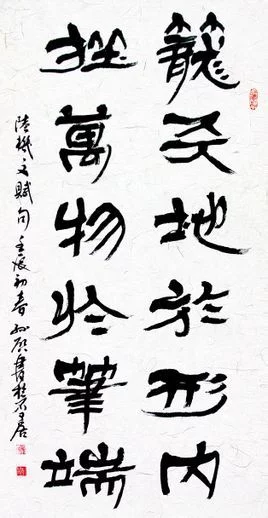 籠天地於形內
挫萬物於筆端
陸機文賦句壬辰初春